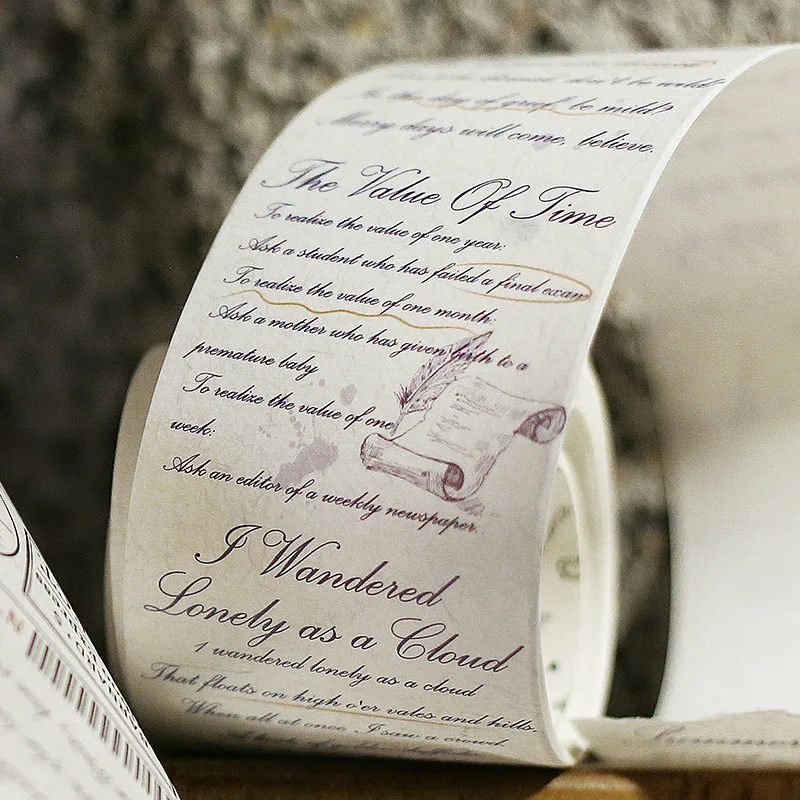 don't be wild?
In the day of grief, be mild?
Merry days will come, believe.
The Value Of Time
To realize the value of one year:
Ask a student who has failed a final exam
To realize the value of one month:
Ask a mother who has given birth to a
premature baby
To realize the value of one
week:
Ask an editor of a weekly newspaper.
I Wandered
Lonely as a Cloud
I wandered lonely as a cloud
That floats on high o'er vales and hills,
When all at once I saw a crowd,
Summer